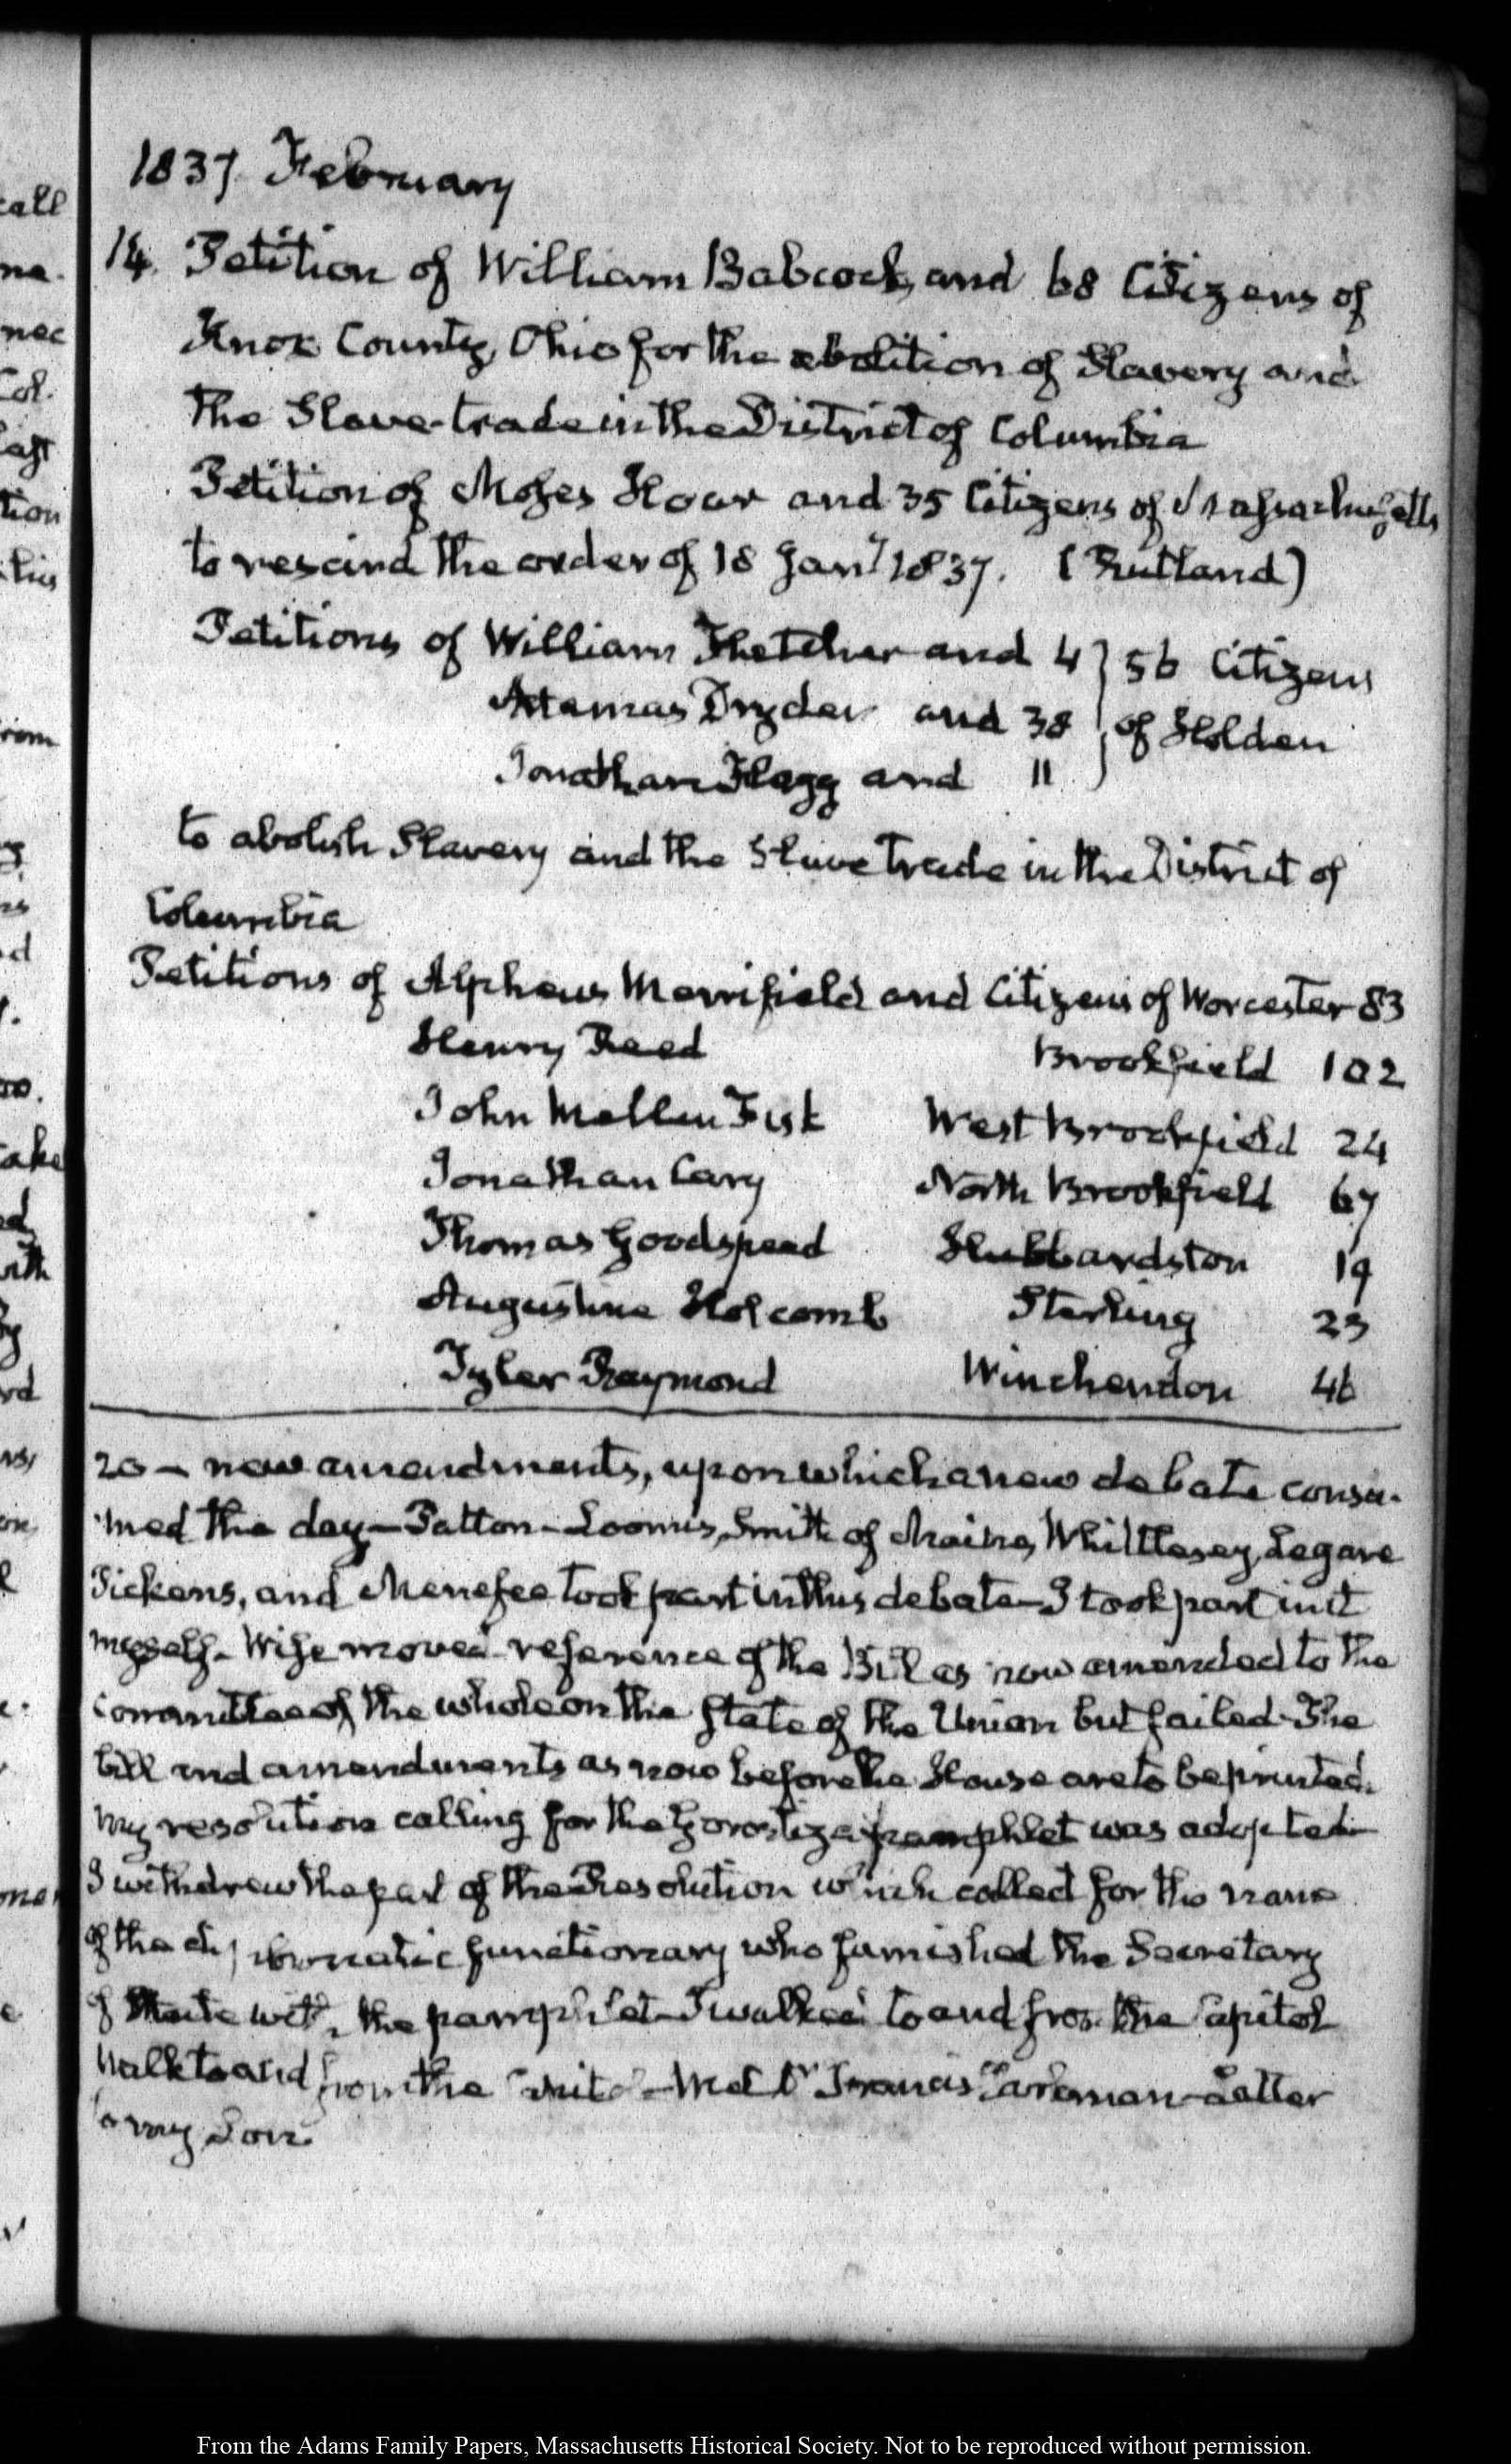 1837. February
14. Petition of William Babcock, and 68 Citizens of
Knox County, Ohio for the abolition of Slavery and
the Slave-trade in the District of Columbia
Petition of Moses How and 35 Citizens of Massachusetts
to rescind the order of 18 Jany 1837. (Rutland)
Petitions of William Fletcher and 4 } 56 Citizens
Artemas Dryden and 38 } of Holden
Jonathan Flagg and 11 }
to abolish Slavery and the Slave trade in the District of
Columbia
Petitions of Alpheus Merrifield and Citizens of Worcester 83
Henry Reed Brookfield 102
John Mellen Fisk West Brookfield 24
Jonathan Cary North Brookfield 67
Thomas Goodspeed Hubbardston 19
Augustine Holcomb Sterling 23
Tyler Raymond Winchendon 46
20 — new amendments, upon which a new debate consu-
med the day — Patton - Loomis, Smith of Maine, Whittlesey, Legare
Pickens, and Menefee took part in this debate — I took part in it
myself - Wise moved reference of the Bill as now amended to the
Committee of the whole on the State of the Union but failed - The
bill and amendments as now before the House are to be printed.
My resolution calling for the Gorostiza pamphlet was adopted -
I withdrew the part of the Resolution which called for the name
of the diplomatic functionary who furnished the Secretary
of State with the pamphlet - I walked to and from the Capitol
Walk to and from the Capitol - Met Dr Francis Parkman - Letter
to my Son.
call
me.
nec
Col.
tion
this
from
d
ake
ed
with
by
rd
on,
From the Adams Family Papers, Massachusetts Historical Society. Not to be reproduced without permission.